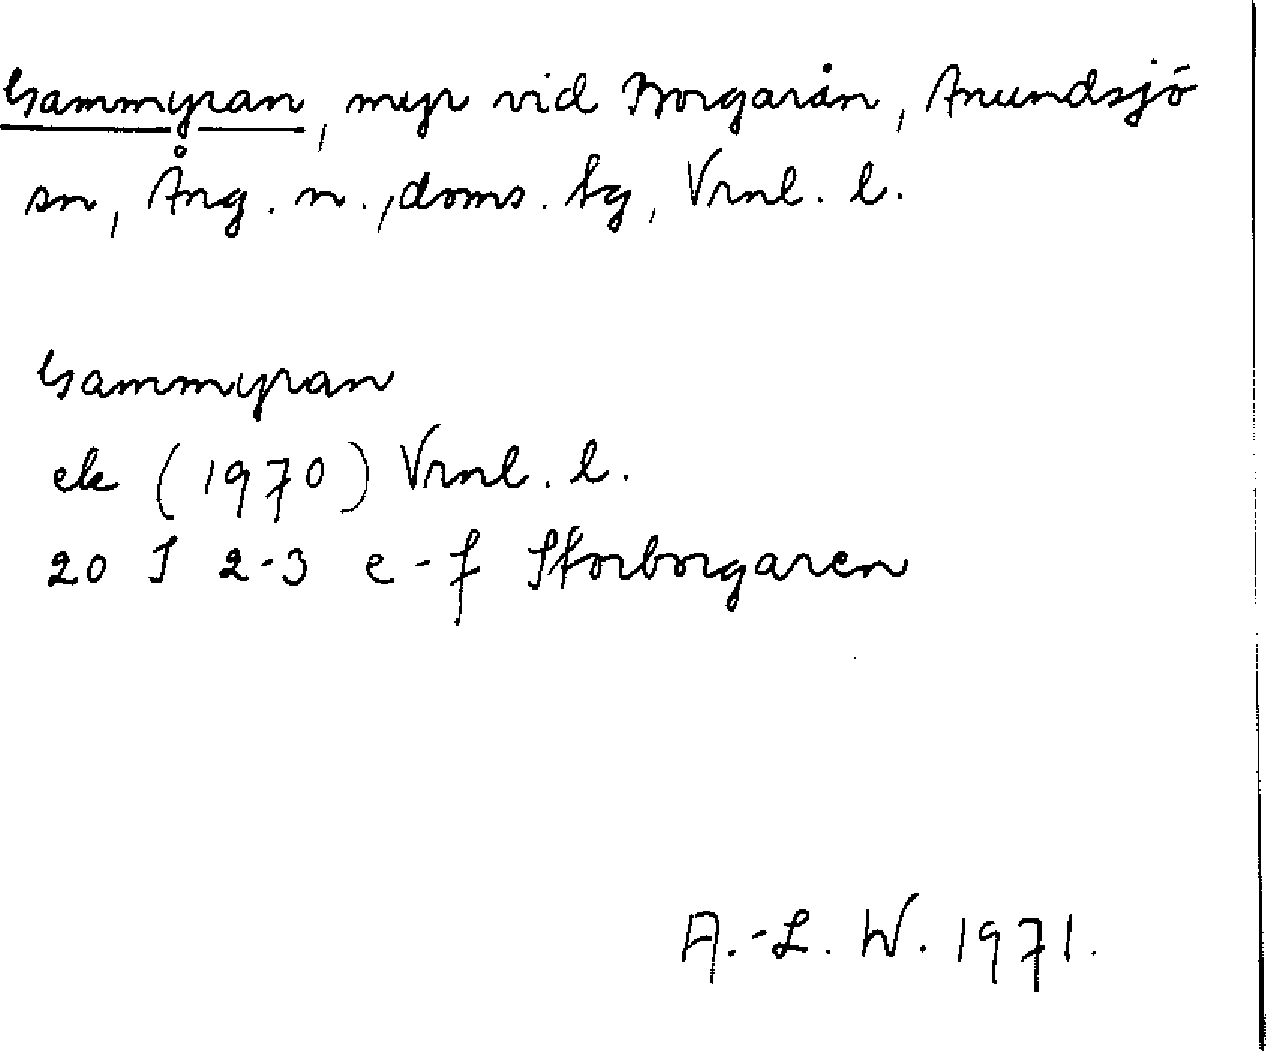 Gammyran, myr vid Borgarån, Anundsjö
sn, Ång. n., doms. tg, Vrnl. l.
Gammyran
ek (1970) Vrnl. l.
20 I 2-3 e-f Storborgaren
A.-L. W. 1971.